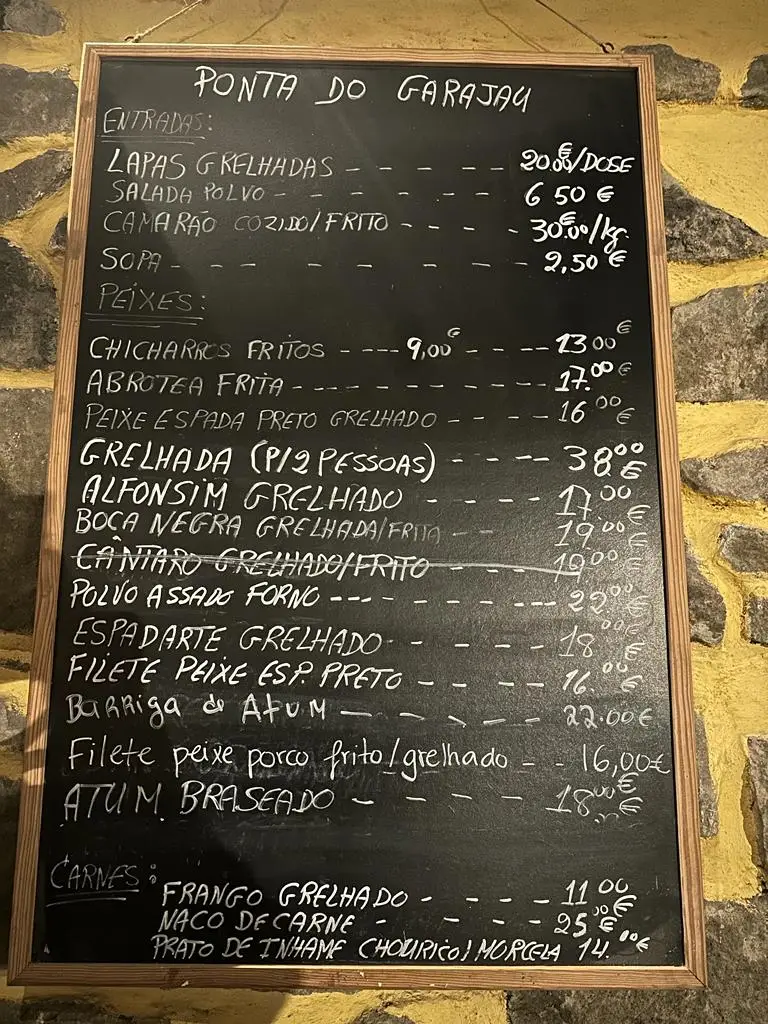 PONTA DO GARAJAU
ENTRADAS:
LAPAS GRELHADAS - - - - - 20.00€/DOSE
SALADA POLVO - - - - - - 6 50 €
CAMARÃO COZIDO/FRITO - - - - 30.00€/kg.
SOPA - - - - - - - - 2,50 €
PEIXES:
CHICHARROS FRITOS - ---- 9,00€ - - - - 13 00 €
ABROTEA FRITA - - - - - - - - - 17.00 €
PEIXE ESPADA PRETO GRELHADO - - - - 16 00 €
GRELHADA (P/2 PESSOAS) - - - - 38 00 €
ALFONSIM GRELHADO - - - - - 17 00 €
BOCA NEGRA GRELHADA/FRITA - - 19 00 €
CÂNTARO GRELHADO/FRITO - - - - 19 00 €
POLVO ASSADO FORNO --- - - - - --- 22 00 €
ESPADARTE GRELHADO - - - - - 18 00 €
FILETE PEIXE ESP. PRETO - - - - 16. 00 €
BARRiga de ATUM - - - - - 22.00€
Filete peixe porco frito/grelhado - - 16,00€
ATUM BRASEADO - - - - 18 00 €
CARNES:
FRANGO GRELHADO - - - - 11 00 €
NACO DE CARNE - - - - 25 00 €
PRATO DE INHAME CHOURIÇO/MORCELA 14. 00€